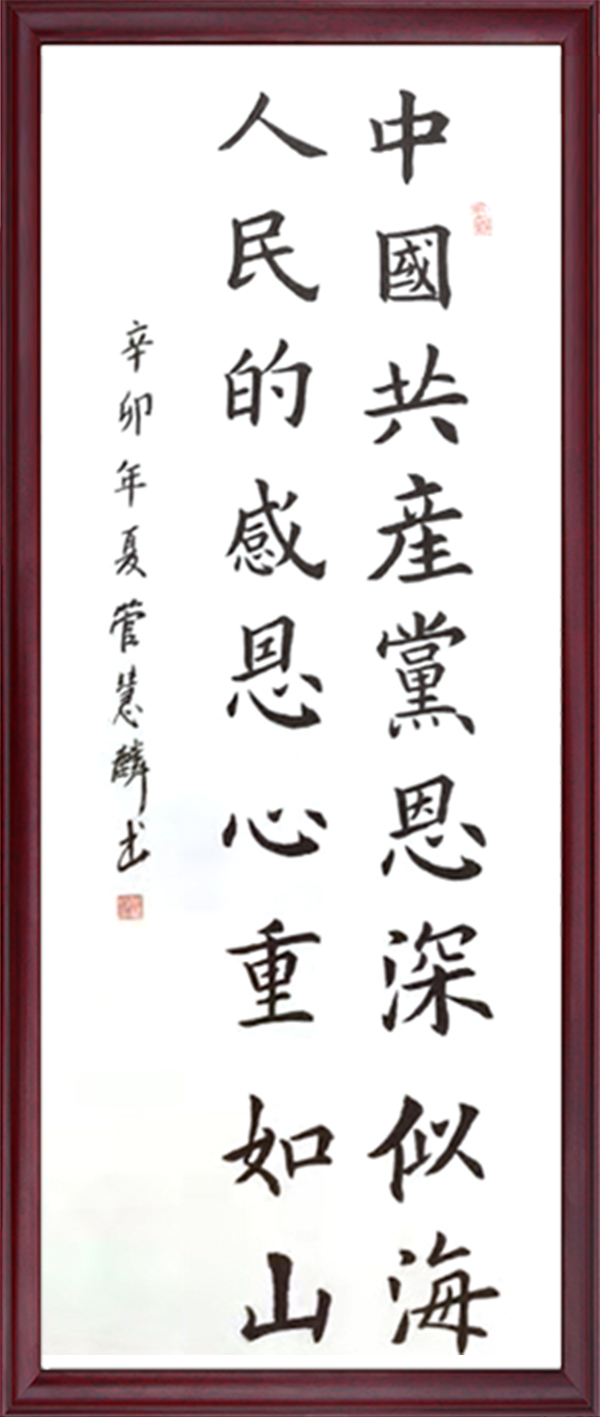 中國共産黨恩深似海
人民的感恩心重如山
辛卯年夏菅慧麟书